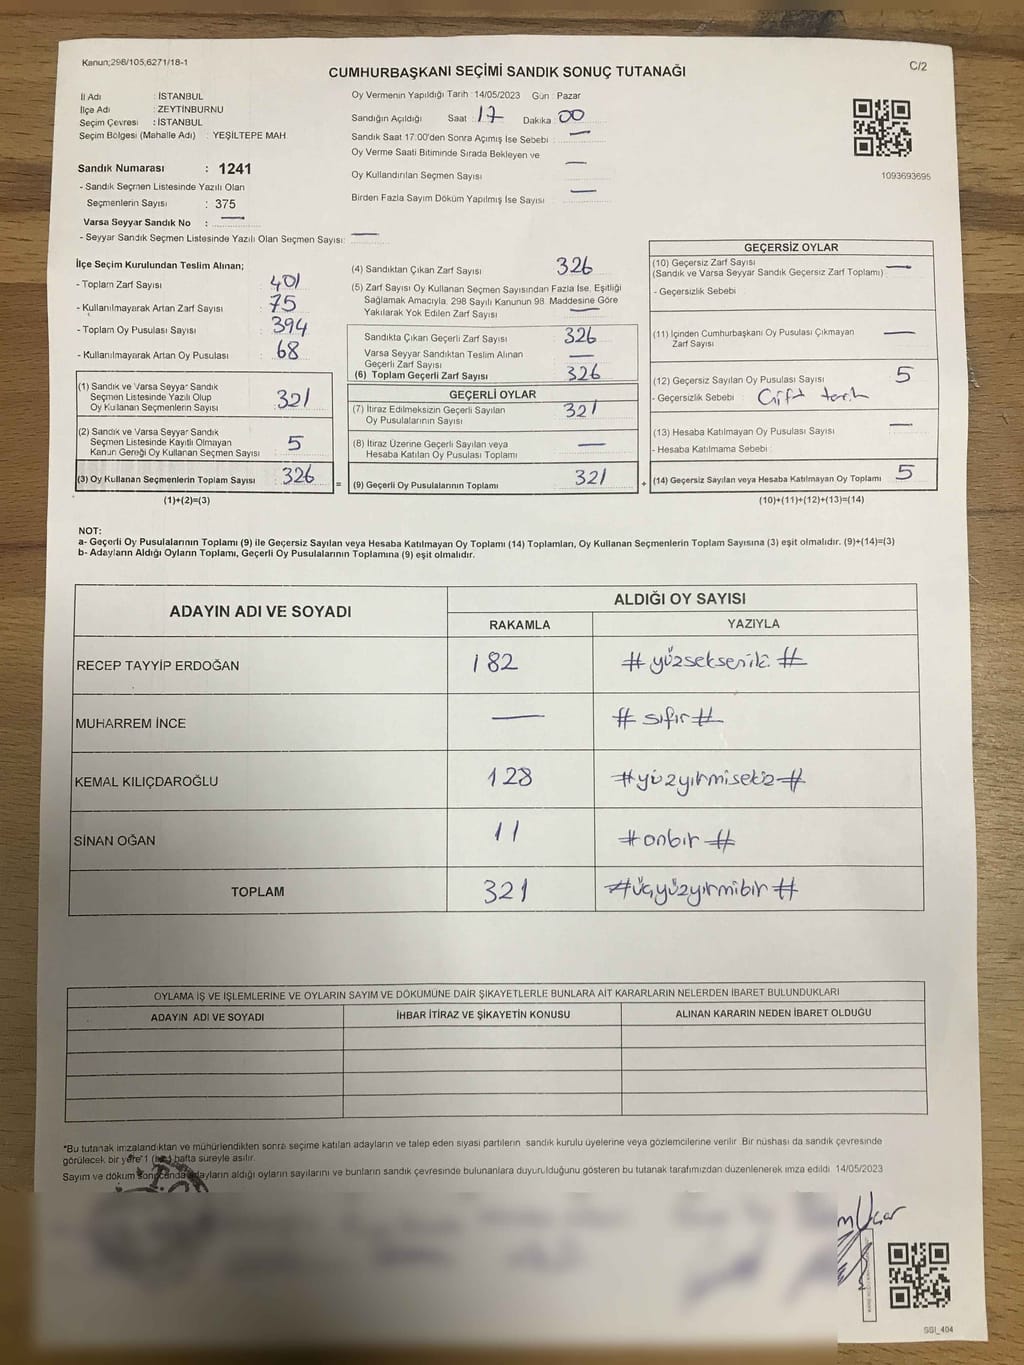 Kanun;298/105,6271/18-1
C/2
CUMHURBAŞKANI SEÇİMİ SANDIK SONUÇ TUTANAĞI
İl Adı : İSTANBUL
İlçe Adı : ZEYTİNBURNU
Seçim Çevresi : İSTANBUL
Seçim Bölgesi (Mahalle Adı) : YEŞİLTEPE MAH.
Sandık Numarası : 1241
- Sandık Seçmen Listesinde Yazılı Olan
Seçmenlerin Sayısı : 375
Varsa Seyyar Sandık No : —
- Seyyar Sandık Seçmen Listesinde Yazılı Olan Seçmen Sayısı: —
Oy Vermenin Yapıldığı Tarih : 14/05/2023 Gün : Pazar
Sandığın Açıldığı Saat : 17 Dakika : 00
Sandık Saat 17:00'den Sonra Açımış İse Sebebi : —
Oy Verme Saati Bitiminde Sırada Bekleyen ve —
Oy Kullandırılan Seçmen Sayısı
Birden Fazla Sayım Döküm Yapılmış İse Sayısı —
1093693695
İlçe Seçim Kurulundan Teslim Alınan;
- Toplam Zarf Sayısı : 401
- Kullanılmayarak Artan Zarf Sayısı : 75
- Toplam Oy Pusulası Sayısı : 394
- Kullanılmayarak Artan Oy Pusulası : 68
(1) Sandık ve Varsa Seyyar Sandık
Seçmen Listesinde Yazılı Olup
Oy Kulanan Seçmenlerin Sayısı : 321
(2) Sandık ve Varsa Seyyar Sandık
Seçmen Listesinde Kayıtlı Olmayan
Kanun Gereği Oy Kullanan Seçmen Sayısı : 5
(3) Oy Kullanan Seçmenlerin Toplam Sayısı : 326
(1)+(2)=(3)
=
(4) Sandıktan Çıkan Zarf Sayısı 326
(5) Zarf Sayısı Oy Kullanan Seçmen Sayısından Fazla İse, Eşitliği
Sağlamak Amacıyla, 298 Sayılı Kanunun 98. Maddesine Göre
Yakılarak Yok Edilen Zarf Sayısı —
Sandıkta Çıkan Geçerli Zarf Sayısı 326
Varsa Seyyar Sandıktan Teslim Alınan —
Geçerli Zarf Sayısı
(6) Toplam Geçerli Zarf Sayısı 326
GEÇERLİ OYLAR
(7) İtiraz Edilmeksizin Geçerli Sayılan 321
Oy Pusulalarının Sayısı
(8) İtiraz Üzerine Geçerli Sayılan veya —
Hesaba Katılan Oy Pusulası Toplamı
(9) Geçerli Oy Pusulalarının Toplamı 321
+
GEÇERSİZ OYLAR
(10) Geçersiz Zarf Sayısı
(Sandık ve Varsa Seyyar Sandık Geçersiz Zarf Toplamı) —
- Geçersizlik Sebebi
(11) İçinden Cumhurbaşkanı Oy Pusulası Çıkmayan —
Zarf Sayısı
(12) Geçersiz Sayılan Oy Pusulası Sayısı 5
- Geçersizlik Sebebi Çift tercih
(13) Hesaba Katılmayan Oy Pusulası Sayısı —
- Hesaba Katılmama Sebebi
(14) Geçersiz Sayılan veya Hesaba Katılmayan Oy Toplamı 5
(10)+(11)+(12)+(13)=(14)
NOT:
a- Geçerli Oy Pusulalarının Toplamı (9) ile Geçersiz Sayılan veya Hesaba Katılmayan Oy Toplamı (14) Toplamları, Oy Kullanan Seçmenlerin Toplam Sayısına (3) eşit olmalıdır. (9)+(14)=(3)
b- Adayların Aldığı Oyların Toplamı, Geçerli Oy Pusulalarının Toplamına (9) eşit olmalıdır.
ADAYIN ADI VE SOYADI
ALDIĞI OY SAYISI
RAKAMLA YAZIYLA
RECEP TAYYİP ERDOĞAN 182 #yüzsekseniki#
MUHARREM İNCE — #sıfır#
KEMAL KILIÇDAROĞLU 128 #yüzyirmisekiz#
SİNAN OĞAN 11 #onbir#
TOPLAM 321 #üçyüzyirmibir#
OYLAMA İŞ VE İŞLEMLERİNE VE OYLARIN SAYIM VE DÖKÜMÜNE DAİR ŞİKAYETLERLE BUNLARA AİT KARARLARIN NELERDEN İBARET BULUNDUKLARI
ADAYIN ADI VE SOYADI İHBAR İTİRAZ VE ŞİKAYETİN KONUSU ALINAN KARARIN NEDEN İBARET OLDUĞU
*Bu tutanak imzalandıktan ve mühürlendikten sonra seçime katılan adayların ve talep eden siyasi partilerin sandık kurulu üyelerine veya gözlemcilerine verilir. Bir nüshası da sandık çevresinde
görülecek bir yere 1 hafta süreyle asılır.
Sayım ve döküm sonucanda adayların aldığı oyların sayılarını ve bunların sandık çevresinde bulunanlara duyurulduğunu gösteren bu tutanak tarafımızdan düzenlenerek imza edildi 14/05/2023
SSI_404